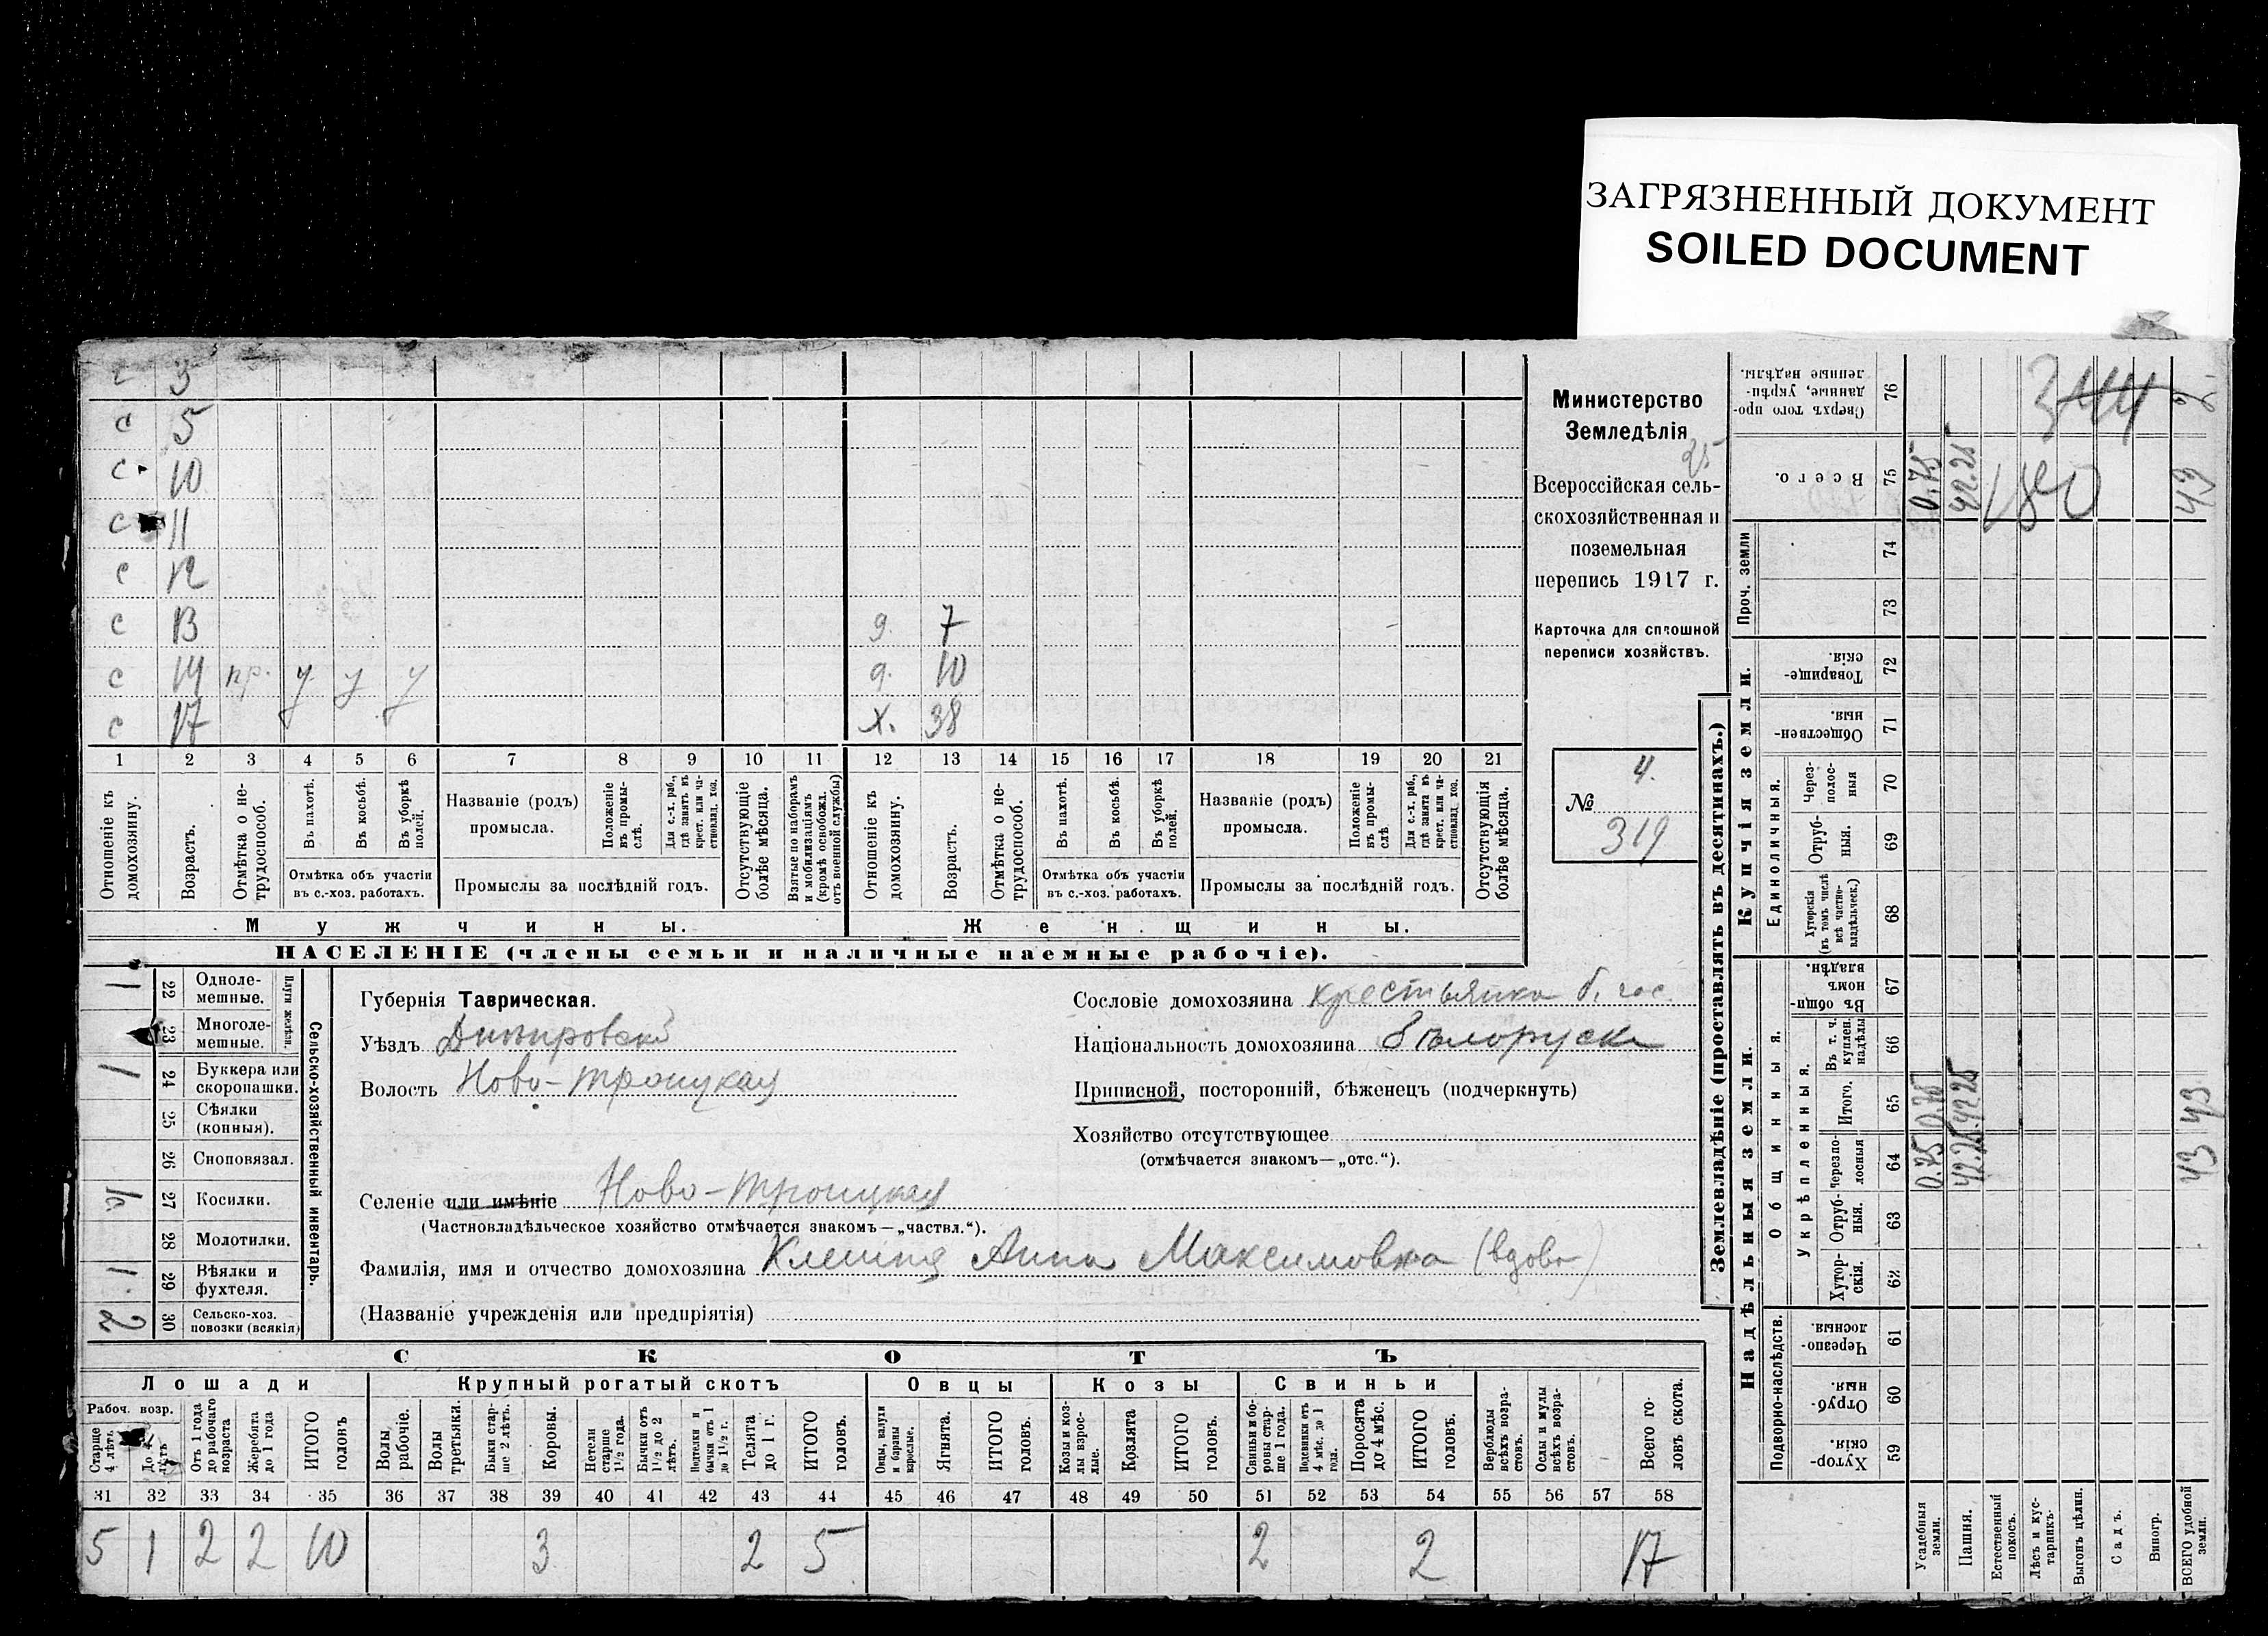 ЗАГРЯЗНЕННЫЙ ДОКУМЕНТ
SOILED DOCUMENT
с 3
с 5
с 10
с 11
с 12
с 13 д. 7
с 14 нр. у у у д. 10
с 17 х. 38
1 2 3 4 5 6 7 8 9 10 11 12 13 14 15 16 17 18 19 20 21
Отношеніе къ домохозяину.
Возрастъ.
Отмѣтка о нетрудоспособ.
Въ пахотѣ.
Въ косьбѣ.
Въ уборкѣ полей.
Отмѣтка объ участіи въ с.-хоз. работахъ.
Названіе (родъ) промысла.
Положеніе въ промыслѣ.
Для с.-х. раб., гдѣ занятъ въ крест. или частновлад. хоз.
Промыслы за послѣдній годъ.
Отсутствующіе болѣе мѣсяца.
Взятые по наборамъ и мобилизаціямъ (кромѣ освобожд. отъ военной службы)
Отношеніе къ домохозяину.
Возрастъ.
Отмѣтка о нетрудоспособ.
Въ пахотѣ.
Въ косьбѣ.
Въ уборкѣ полей.
Отмѣтка объ участіи въ с.-хоз. работахъ.
Названіе (родъ) промысла.
Положеніе въ промыслѣ
Для с.-х. раб., гдѣ занята въ крест. или частновлад. хоз.
Промыслы за послѣдній годъ.
Отсутствующія болѣе мѣсяца.
Мужчины.
Женщины.
НАСЕЛЕНІЕ (члены семьи и наличные наемные рабочіе).
Министерство
Земледѣлія
25
Всероссійская сель-
скохозяйственная и
поземельная
перепись 1917 г.
Карточка для сплошной
переписи хозяйствъ.
4.
№
319
Сельско-хозяйственный инвентарь.
Плуги желѣзн.
1 22 Однолемешные.
23 Многолемешные.
1 24 Буккера или скоропашки.
25 Сѣялки (конныя).
26 Сноповязал.
27 Косилки.
28 Молотилки.
1 29 Вѣялки и фухтеля.
2 30 Сельско-хоз. повозки (всякія)
Губернія Таврическая.
Уѣздъ Днѣпровскій
Волость Ново-Троицкая
Селеніе или имѣніе Ново-Троицкая
(Частновладѣльческое хозяйство отмѣчается знакомъ—„частвл.“).
Фамилія, имя и отчество домохозяина Анна Максимовна (вдова)
(Названіе учрежденія или предпріятія)
Сословіе домохозяина крестьянка б. гос.
Національность домохозяина бѣлоруска
Приписной, посторонній, бѣженецъ (подчеркнуть)
Хозяйство отсутствующее
(отмѣчается знакомъ—„отс.“).
СКОТЪ
Лошади
Крупный рогатый скотъ
Овцы
Козы
Свиньи
Рабоч. возр.
Старше 4 лѣтъ
До 4 лѣтъ
Отъ 1 года до рабочаго возраста
Жеребята до 1 года
ИТОГО головъ
Волы рабочіе.
Волы третьяки.
Быки старше 2 лѣтъ.
Коровы.
Нетели старше 1½ года.
Бычки отъ 1½ до 2 лѣтъ.
Подтелки и бычки отъ 1 до 1½ г.
Телята до 1 г.
ИТОГО головъ.
Овцы, валухи и бараны взрослые.
Ягнята.
ИТОГО головъ.
Козы и козлы взрослые.
Козлята
ИТОГО головъ.
Свиньи и боровы старше 1 года.
Подсвинки отъ 4 мѣс. до 1 года.
Поросята до 4 мѣс.
ИТОГО головъ.
Верблюды всѣхъ возрастовъ.
Ослы и мулы всѣхъ возрастовъ.
Всего головъ скота.
31 32 33 34 35 36 37 38 39 40 41 42 43 44 45 46 47 48 49 50 51 52 53 54 55 56 57 58
5 1 2 2 10 3 2 5 2 2 17
Землевладѣніе (проставлять въ десятинахъ.)
Купчія земли.
Надѣльныя земли.
Сверхъ того проданные, укрѣпленные надѣлы. 76 344
Всего. 75 0.75 42.25 180 43
Проч. земли 74
73
Товарищескія. 72
Общественныя. 71
Единоличныя.
Черезполосныя 70
Отрубныя. 69
Хуторскія (въ томъ числѣ всѣ частновладѣльческ.) 68
Общинныя.
Въ общинномъ владѣн. 67
Укрѣпленныя.
Въ т. ч. куплен. надѣлы 66
Итого. 65 0.75 42.25 43
Черезполосныя 64 0.75 42.25 43
Отрубныя. 63
Хуторскія. 62
Подворно-наслѣдств.
Черезполосныя. 61
Отрубныя. 60
Хуторскія. 59
Усадебныя земли.
Пашня.
Естественный покосъ.
Лѣсъ и кустарникъ.
Выгонъ цѣлин.
Садъ.
Виногр.
ВСЕГО удобной земли.